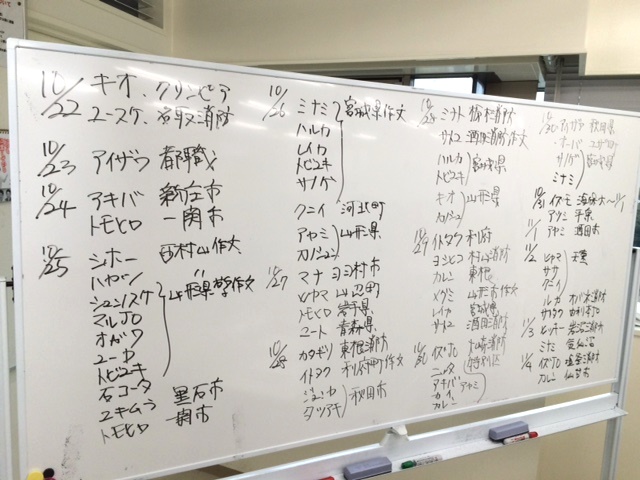 10/22 キオ、クリンピア
ユースケ、名取消防
10/23 アイザワ 都職
10/24 アキバ 新庄市
トモヒロ 一関市
10/25 シホー 西村山作文
ハヤシ 〃
シュンスケ 山形県警作文
マルJO
オガワ
ユーカ
トビユキ
石コータ 黒石市
ユキムラ 一関市
トモヒロ
10/26 ミナミ 宮城県作文
ハルカ
レイカ
トビユキ
サノゲ
クニイ 河北町
アヤミ 山形県
カノジュン
10/27 マナ 村市
ヒヤマ 山辺町
トモヒロ 岩手県
ユート 青森県
10/28 カタギリ 東根消防
イトタク 利府町作文
秋田市
タツアキ
ミナト 消防
サトユ 酒田消防作文
ハルカ 宮城県
トビユキ
キオ 山形県
カノジュン
10/29 イトタク 利府
ヨシヒコ 村山消防
カレン 東根
メグミ 山形市作文
レイカ 宮城県
サトユ 酒田消防
大崎消防
ニッタ 特別区
アキバ アヤミ
カイ
カレン
10/30 秋田県
オーバ
サノゲ 宮城県
ミナミ
10/31 イズモ 海保大～11/1
アツミ 千葉
11/1 アヤミ 酒田市
11/2 ヒヤマ 天童
ササ
クニイ
ルカ 消防
サタク
11/3 ヒッキー 岩沼消防
ミナミ 気仙沼
11/4 塩釜消防
カレン 仙台市